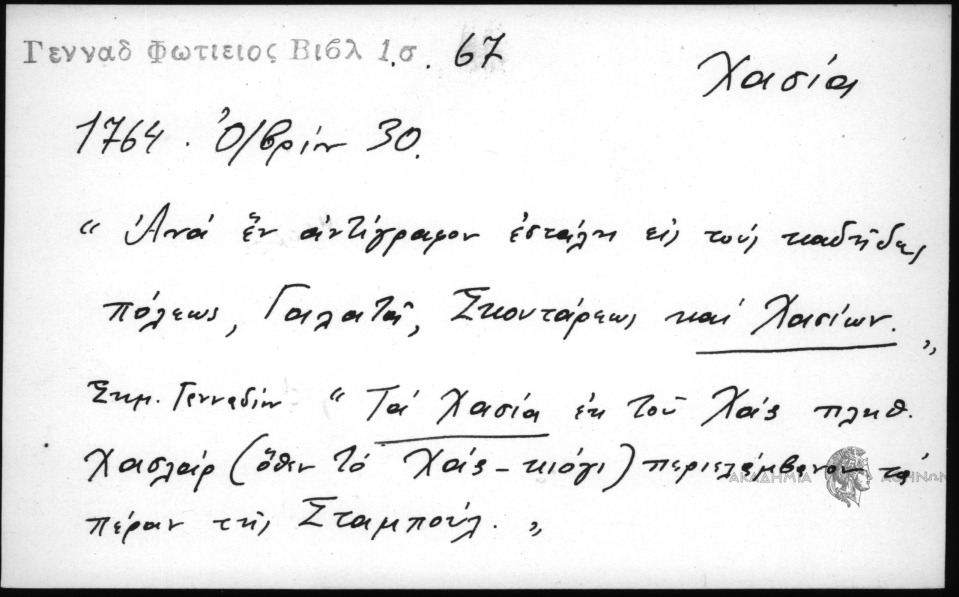 Γενναδ Φωτιειος Βιβλ 1.σ. 67
Χασία
1764. Ὀ/βρίν 30.
“ Ἀνά ἕν ἀντίγραφον ἐστάλη εἰς τούς καδῆδες
πόλεως, Γαλατᾶ, Σκουτάρεως καί Χασίων. „
Σημ. Γενναδίν “ Τά Χασία ἐκ τοῦ Χάς πληθ.
Χασλάρ (ὅθεν τό Χάς-κιόγι) περιελάμβανον τά
πέραν τῆς Σταμπούλ. „
ΑΚΑΔΗΜΙΑ ΑΘΗΝΩΝ